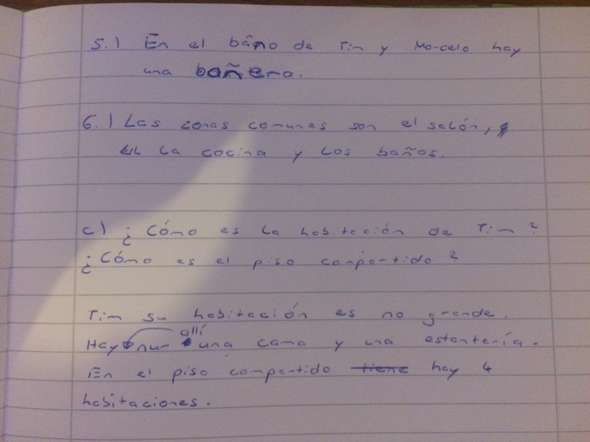 5.) En el báño de Tim y Marcelo hay
una bañera.
6.) Las zonas comunes son el salón,
la cocina y los baños.
c) ¿Cómo es la habitación de Tim?
¿Cómo es el piso compartido?
Tim su habitación es no grande.
allí
Hay nur una cama y una estantería.
En el piso compartido tiene hay 4
habitaciones.